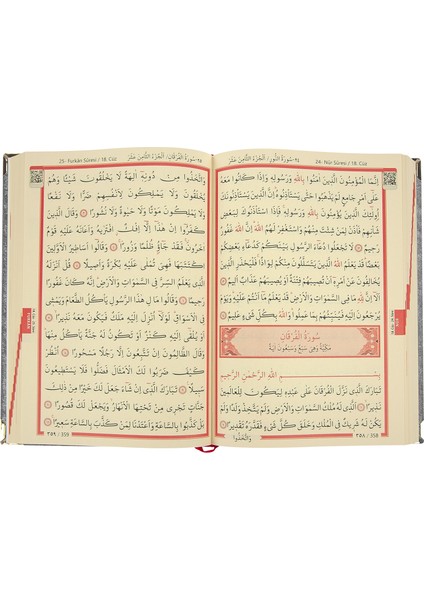 ٢٤-سُورَةُ النُّورِ / اَلْجُزْءُ الثَّامِنَ عَشَرَ 24- Nûr Sûresi / 18. Cüz
اِنَّمَا الْمُؤْمِنُونَ الَّذ۪ينَ اٰمَنُوا بِاللّٰهِ وَرَسُولِه۪ وَاِذَا كَانُوا مَعَهُ
عَلٰٓى اَمْرٍ جَامِعٍ لَمْ يَذْهَبُوا حَتّٰى يَسْتَأْذِنُوهُۜ اِنَّ الَّذ۪ينَ يَسْتَأْذِنُونَكَ
اُو۬لٰٓئِكَ الَّذ۪ينَ يُؤْمِنُونَ بِاللّٰهِ وَرَسُولِه۪ۚ فَاِذَا اسْتَأْذَنُوكَ لِبَعْضِ
شَأْنِهِمْ فَأْذَنْ لِمَنْ شِئْتَ مِنْهُمْ وَاسْتَغْفِرْ لَهُمُ اللّٰهَۜ اِنَّ اللّٰهَ غَفُورٌ
رَح۪يمٌ لَا تَجْعَلُوا دُعَٓاءَ الرَّسُولِ بَيْنَكُمْ كَدُعَٓاءِ بَعْضِكُمْ
بَعْضًاۜ قَدْ يَعْلَمُ اللّٰهُ الَّذ۪ينَ يَتَسَلَّلُونَ مِنْكُمْ لِوَاذًاۚ فَلْيَحْذَرِ الَّذ۪ينَ
يُخَالِفُونَ عَنْ اَمْرِه۪ٓ اَنْ تُص۪يبَهُمْ فِتْنَةٌ اَوْ يُص۪يبَهُمْ عَذَابٌ اَل۪يمٌ
اَلَٓا اِنَّ لِلّٰهِ مَا فِي السَّمٰوَاتِ وَالْاَرْضِۜ قَدْ يَعْلَمُ مَٓا اَنْتُمْ عَلَيْهِۜ وَيَوْمَ
يُرْجَعُونَ اِلَيْهِ فَيُنَبِّئُهُمْ بِمَا عَمِلُواۜ وَاللّٰهُ بِكُلِّ شَيْءٍ عَل۪يمٌ
سُورَةُ الْفُرْقَانِ
مَكِّيَّةٌ وَهِيَ سَبْعٌ وَسَبْعُونَ اٰيَةً
بِسْمِ اللّٰهِ الرَّحْمٰنِ الرَّح۪يمِ
تَبَارَكَ الَّذ۪ي نَزَّلَ الْفُرْقَانَ عَلٰى عَبْدِه۪ لِيَكُونَ لِلْعَالَم۪ينَ
نَذ۪يرًا اَلَّذ۪ي لَهُ مُلْكُ السَّمٰوَاتِ وَالْاَرْضِ وَلَمْ يَتَّخِذْ وَلَدًا وَلَمْ
يَكُنْ لَهُ شَر۪يكٌ فِي الْمُلْكِ وَخَلَقَ كُلَّ شَيْءٍ فَقَدَّرَهُ تَقْد۪يرًا
وَاتَّخَذُوا
٣٥٨ / 358
٢٥-سُورَةُ الْفُرْقَانِ / اَلْجُزْءُ الثَّامِنَ عَشَرَ 25- Furkân Sûresi / 18. Cüz
وَاتَّخَذُوا مِنْ دُونِه۪ٓ اٰلِهَةً لَا يَخْلُقُونَ شَيْـًٔا وَهُمْ
يُخْلَقُونَ وَلَا يَمْلِكُونَ لِاَنْفُسِهِمْ ضَرًّا وَلَا نَفْعًا
وَلَا يَمْلِكُونَ مَوْتًا وَلَا حَيٰوةً وَلَا نُشُورًا وَقَالَ الَّذ۪ينَ
كَفَرُٓوا اِنْ هٰذَٓا اِلَّٓا اِفْكٌۨ افْتَرٰيهُ وَاَعَانَهُ عَلَيْهِ قَوْمٌ
اٰخَرُونَۚ فَقَدْ جَٓاؤُ۫ ظُلْمًا وَزُورًا وَقَالُٓوا اَسَاط۪يرُ الْاَوَّل۪ينَ
اكْتَتَبَهَا فَهِيَ تُمْلٰى عَلَيْهِ بُكْرَةً وَاَص۪يلًا قُلْ اَنْزَلَهُ
الَّذ۪ي يَعْلَمُ السِّرَّ فِي السَّمٰوَاتِ وَالْاَرْضِۜ اِنَّهُ كَانَ غَفُورًا
رَح۪يمًا وَقَالُوا مَالِ هٰذَا الرَّسُولِ يَأْكُلُ الطَّعَامَ وَيَمْش۪ي
فِي الْاَسْوَاقِۜ لَوْلَٓا اُنْزِلَ اِلَيْهِ مَلَكٌ فَيَكُونَ مَعَهُ نَذ۪يرًا
اَوْ يُلْقٰٓى اِلَيْهِ كَنْزٌ اَوْ تَكُونُ لَهُ جَنَّةٌ يَأْكُلُ مِنْهَاۜ
وَقَالَ الظَّالِمُونَ اِنْ تَتَّبِعُونَ اِلَّا رَجُلًا مَسْحُورًا اُنْظُرْ
كَيْفَ ضَرَبُوا لَكَ الْاَمْثَالَ فَضَلُّوا فَلَا يَسْتَط۪يعُونَ
سَب۪يلًا تَبَارَكَ الَّذ۪ٓي اِنْ شَٓاءَ جَعَلَ لَكَ خَيْرًا مِنْ ذٰلِكَ
جَنَّاتٍ تَجْر۪ي مِنْ تَحْتِهَا الْاَنْهَارُ وَيَجْعَلْ لَكَ قُصُورًا
بَلْ كَذَّبُوا بِالسَّاعَةِ وَاَعْتَدْنَا لِمَنْ كَذَّبَ بِالسَّاعَةِ سَع۪يرًا
٣٥٩ / 359